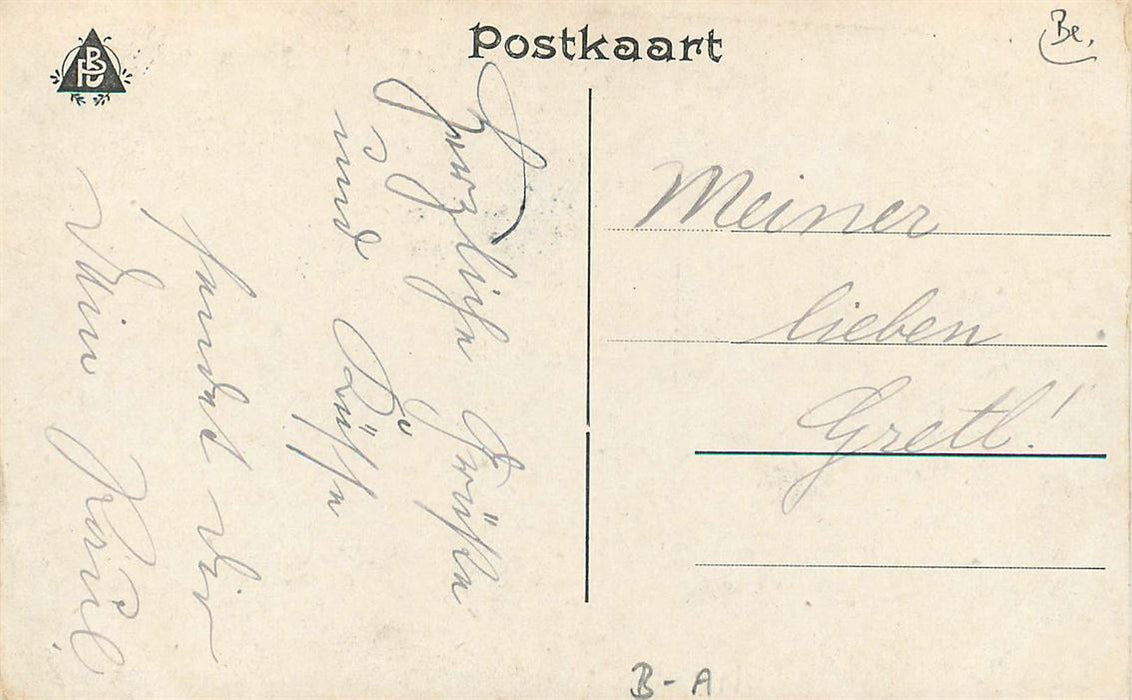 Postkaart
Be,
Meiner
lieben
Gretl!
Herzliche Grüße
und Küsse
sendet dir
Dein
B-A